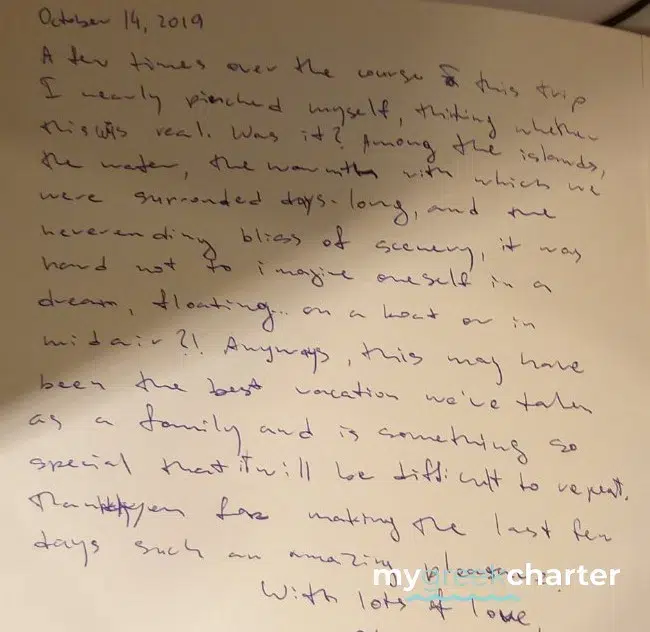 October 14, 2019
A few times over the course of this trip
I nearly pinched myself, thinking whether
this was real. Was it? Among the islands,
the water, the warmth with which we
were surronded days-long, and the
neverending bliss of scenery, it was
hard not to imagine oneself in a
dream, floating... on a boat or in
midair?! Anyways, this may have
been the best vacation we've taken
as a family and is something so
special that it will be difficult to repeat.
Thank you for making the last few
days such an amazing pleasure.
mygreekcharter
With lots of love,